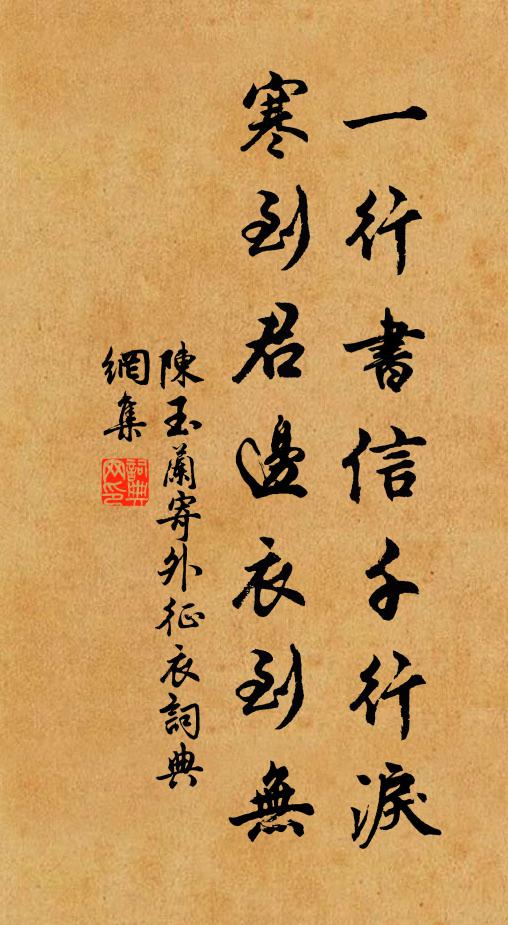 一行書信千行淚
寒到君邊衣到無
陳玉蘭寄外征衣詞典
網集
詞典
网印